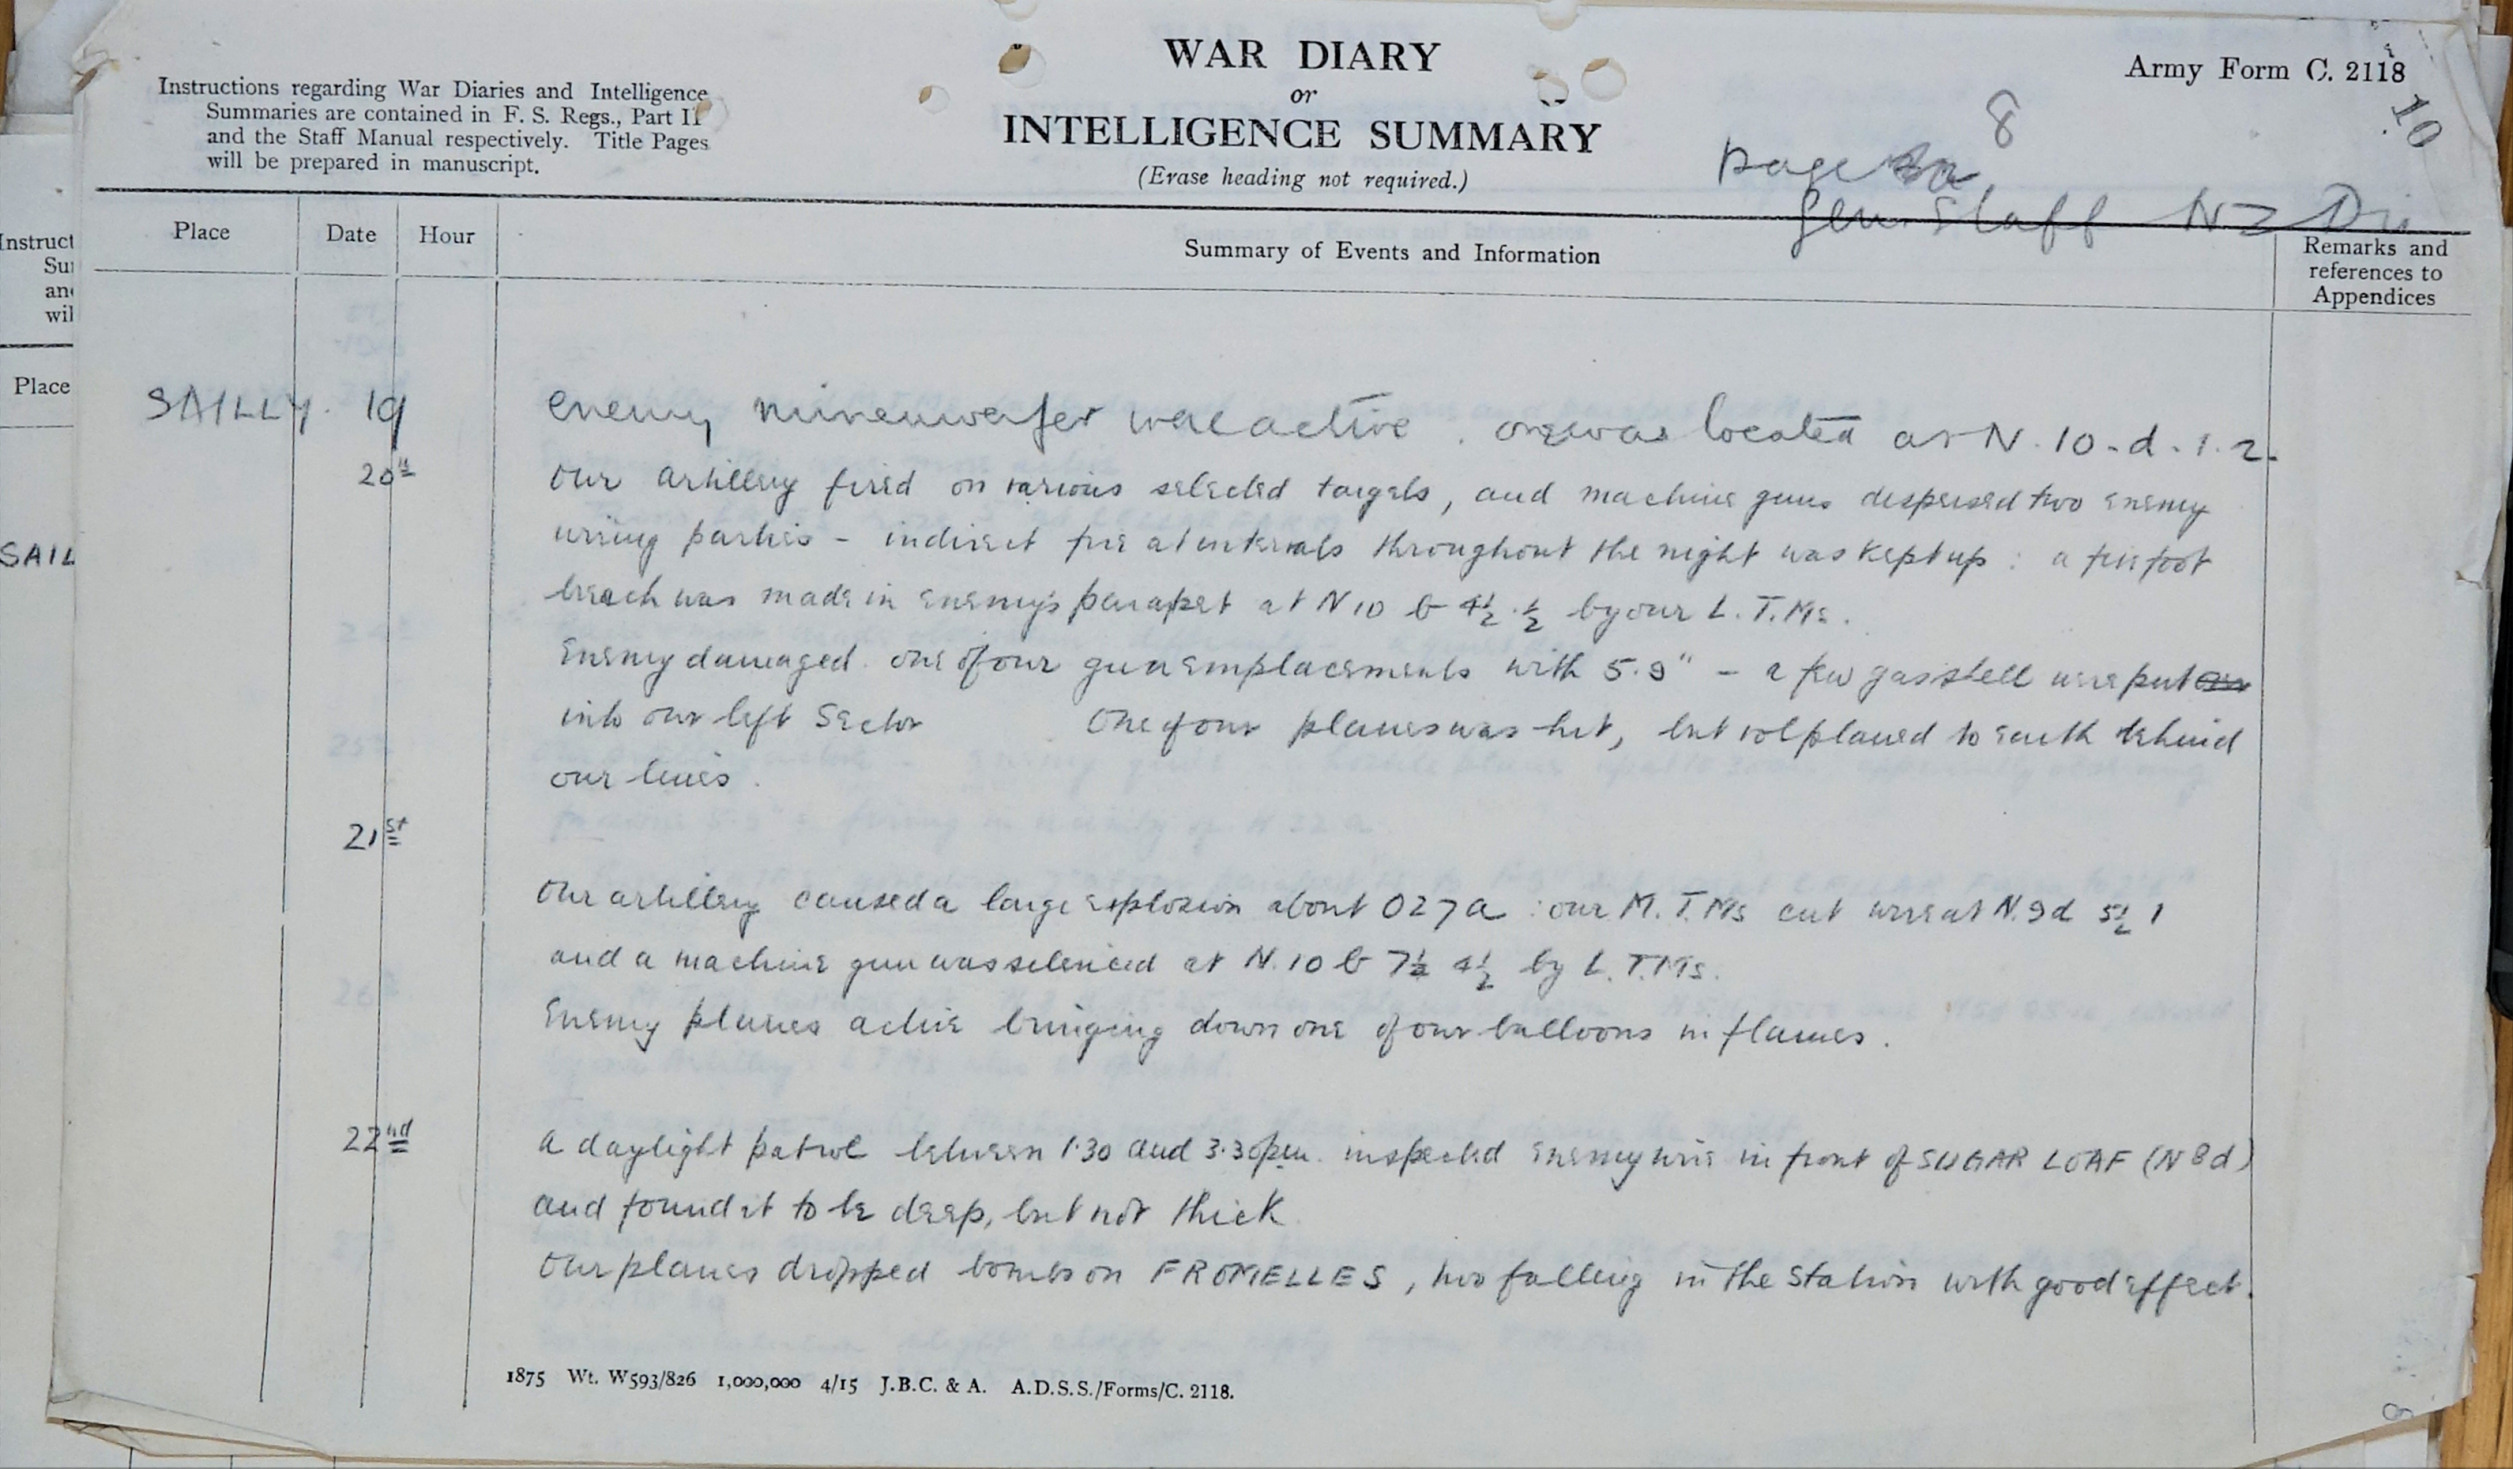 Army Form C. 2118
WAR DIARY
or
INTELLIGENCE SUMMARY
(Erase heading not required.)
Instructions regarding War Diaries and Intelligence
Summaries are contained in F. S. Regs., Part II
and the Staff Manual respectively. Title Pages
will be prepared in manuscript.
10
8
page
Gen. Staff NZ Div
Place Date Hour Summary of Events and Information Remarks and
references to
Appendices
SAILLY. 19 Enemy minenwerfer were active. one was located at N.10-d.1.2.
20th Our artillery fired on various selected targets, and machine guns dispersed two enemy
wiring parties - indirect fire at intervals throughout the night was kept up: a five foot
breach was made in enemy's parapet at N 10 b 4½.½ by our L.T.Ms.
Enemy damaged one of our gun emplacements with 5.9" - a few gas shell were put
into our left Sector One of our planes was hit, but volplaned to earth behind
our lines.
21st
Our artillery caused a large explosion about O27a : our M.T.Ms cut wire at N.9d 5½ 1
and a machine gun was silenced at N.10 b 7½ 4½ by L.T.Ms.
Enemy planes active bringing down one of our balloons in flames.
22nd A daylight patrol between 1.30 and 3.30pm. inspected enemy wire in front of SUGAR LOAF (N 8d)
and found it to be deep, but not thick
Our planes dropped bombs on FROMELLES, two falling in the Station with good effect.
1875 Wt. W593/826 1,000,000 4/15 J.B.C. & A. A.D.S.S./Forms/C. 2118.
Instruct
Su
an
wil
Place
SAIL